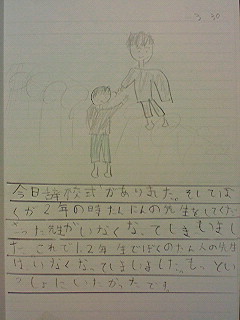 3.30
今日辞校式がありました。そしてぼ
くが2年の時たんにんの先生をしてくだ
さった先生がいなくなってしまいまし
た。これで1.2年生でぼくのたん人の先生
はいなくなってしまいました。もっとい
っしょにいたかったです。